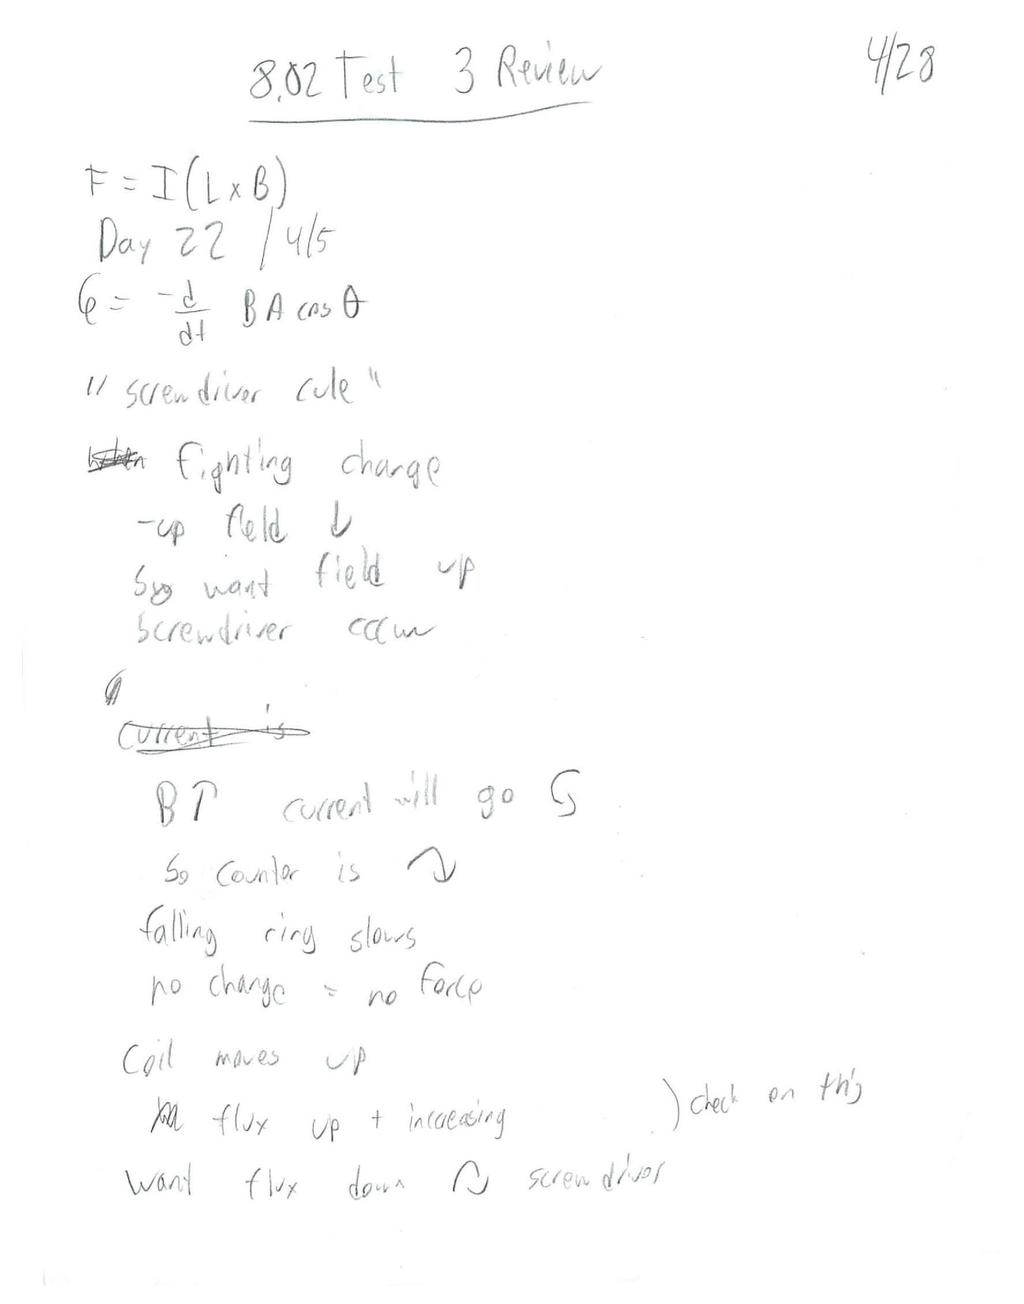 8.02 Test 3 Review 4/28
F = I(L x B)
Day 22 / 4/5
ε = -d/dt BA cos θ
"screwdriver rule"
fighting change
-up field ↓
So want field up
screwdriver ccw
B↑ current will go
So counter is
falling ring slows
no change = no force
Coil moves up
flux up + increasing ) check on this
want flux down screwdriver